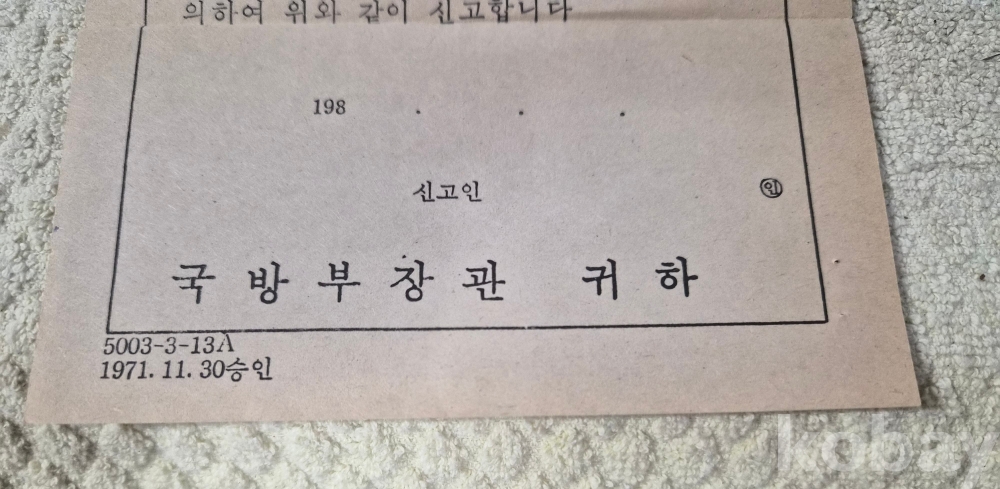 의하여 위와 같이 신고합니다
198 . . .
신고인 ㊞
국방부장관 귀하
5003-3-13A
1971. 11. 30승인
kobay